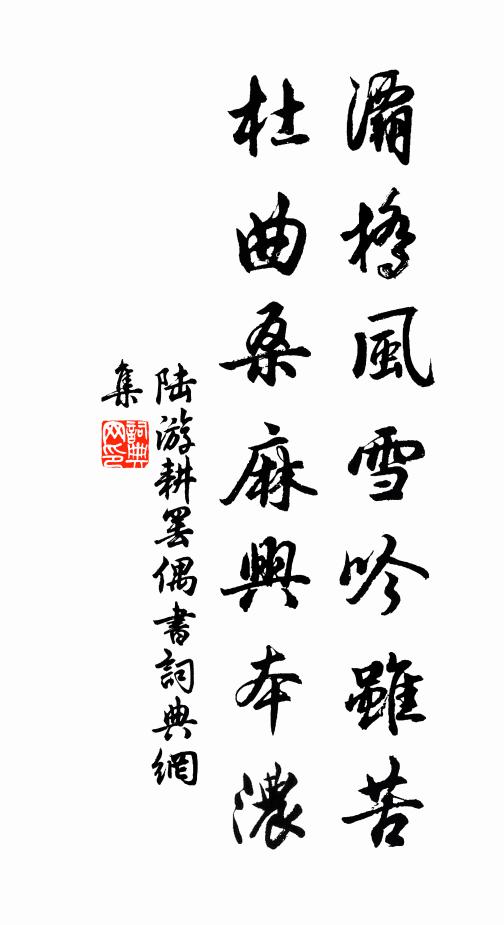 灞橋風雪吟雖苦
杜曲桑麻興本濃
陸游耕罷偶書詞典網
集
詞典
网印